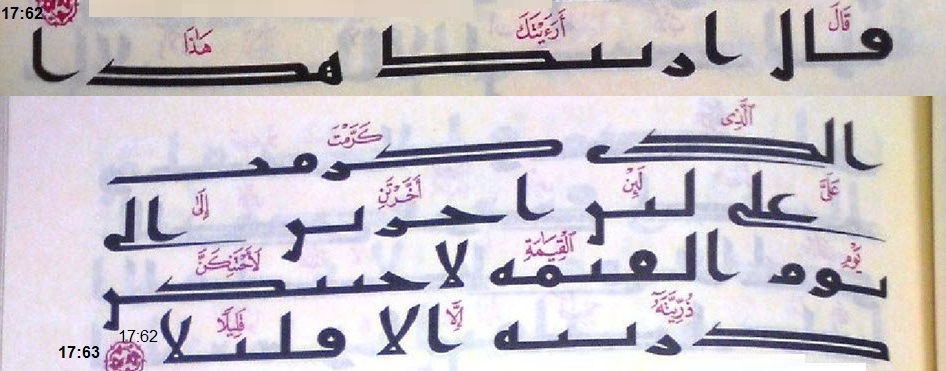 17:62
قَالَ أَرَءَيْتَكَ هَٰذَا
قال ارىىك هدا
ٱلَّذِى كَرَّمْتَ
الدى كرمت
عَلَىَّ لَئِنْ أَخَّرْتَنِ إِلَىٰ
على لىں احرىں الى
يَوْمِ الْقِيَامَةِ لَأَحْتَنِكَنَّ
ىوم القىمه لاحىىكں
ذُرِّيَّتَهُۥٓ إِلَّا قَلِيلًا
درىىه الا قلىلا
17:62
17:63